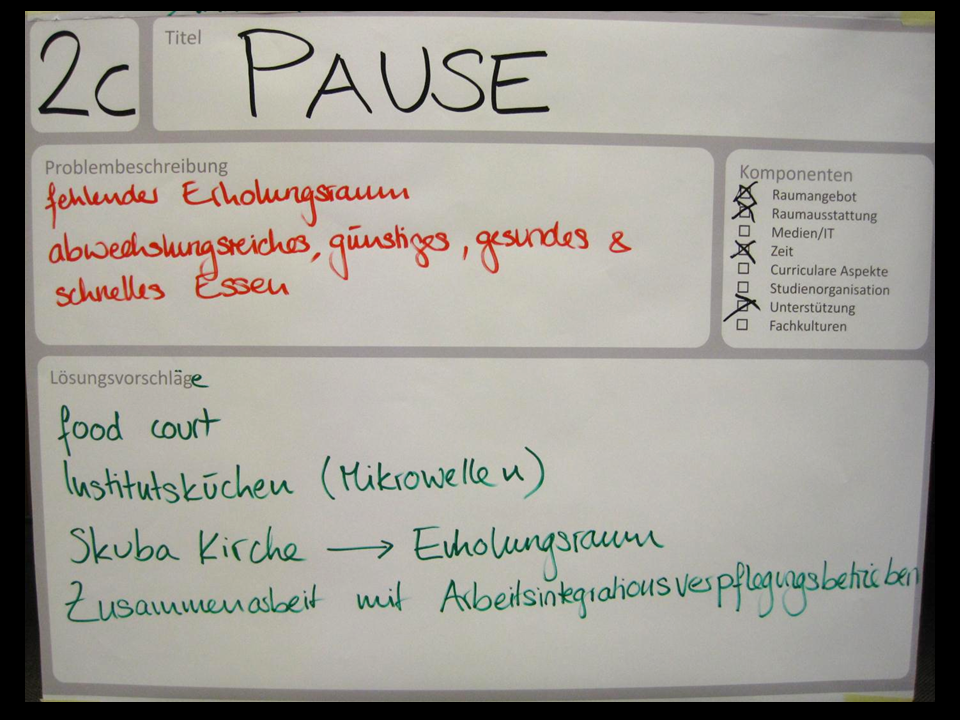 2c
Titel
PAUSE
Problembeschreibung
fehlender Erholungsraum
abwechslungsreiches, günstiges, gesundes &
schnelles Essen
Komponenten
Raumangebot
Raumausstattung
Medien/IT
Zeit
Curriculare Aspekte
Studienorganisation
Unterstützung
Fachkulturen
Lösungsvorschläge
food court
Institutsküchen (Mikrowellen)
Skuba Kirche → Erholungsraum
Zusammenarbeit mit Arbeitsintegrationsverpflegungsbetrieben